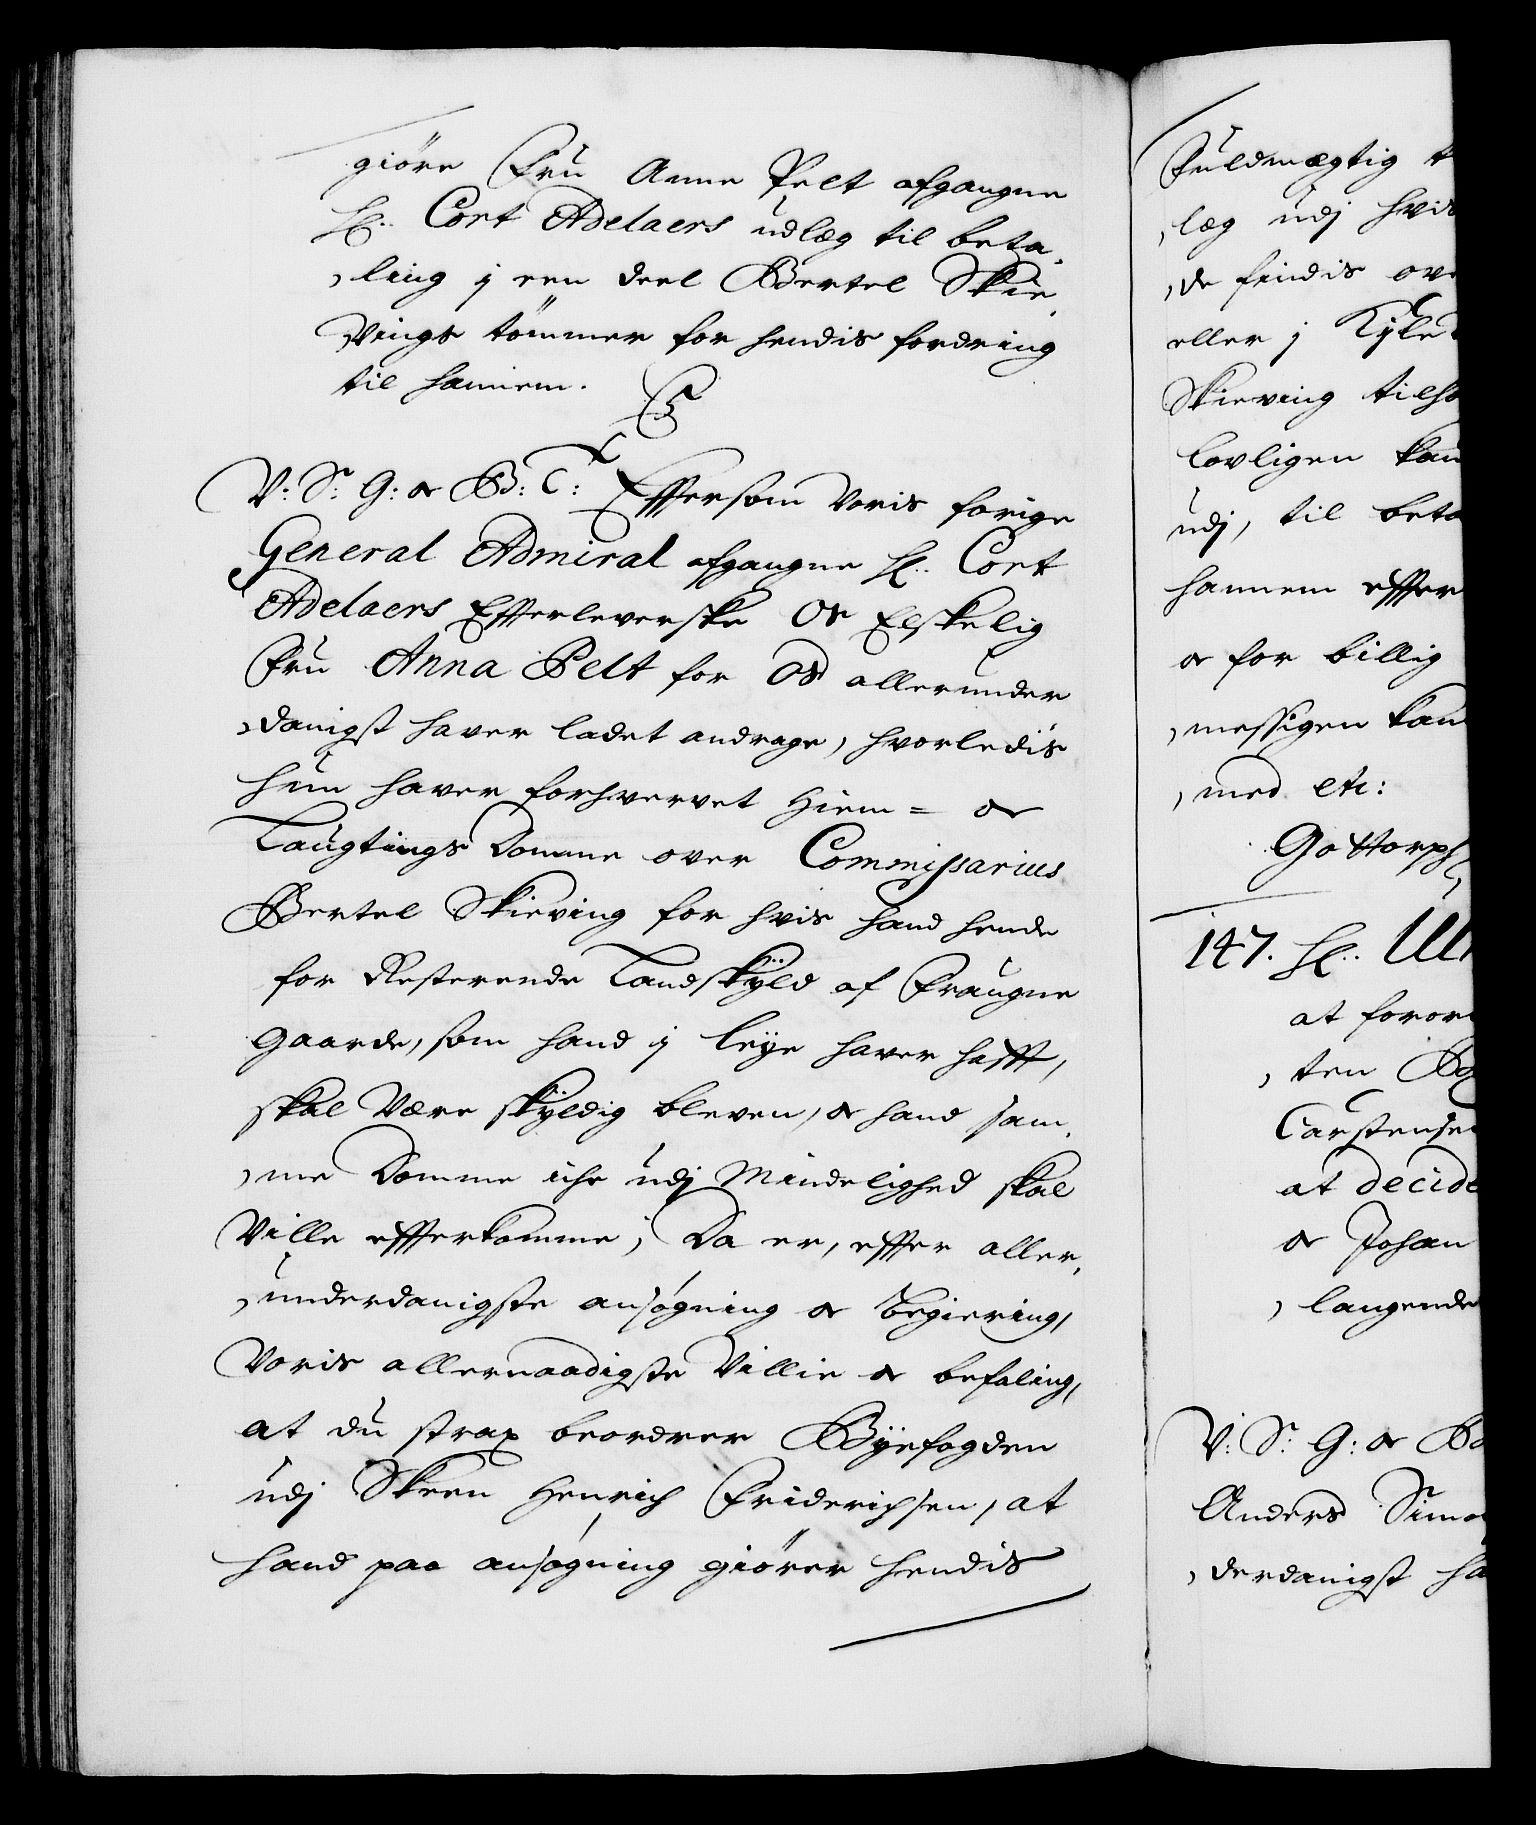 giöre Fru Anne Pelt afgangne
Hr. Cort Adelaers udlæg til beta-
ling j een deel Bertel Skie-
Vings tömmer for hendis fordring
til hannem.
V: S: G: oc B: C: Effersom Voris forige
General Admiral afgangne Hr. Cort
Adelaers Efferleverske Os Elskelig
Fru Anna Pelt for Os allerunder
danigst haver ladet andrage, hvorledis
hun haver forhvervet Hiem= oc
Laugtings Domme over Commissarius
Bertel Skieving for hvis hand hende
for Resterende Landskÿld af Fraugne
gaarde, som hand j leye haver hafft,
skal Være skÿldig bleven, oc hand sam-
me Domme iche udj Mindelighed skal
Ville effterkomme; Da er, effter aller-
underdanigste ansøgning oc begiering,
Voris allernaadigste Villie oc befaling,
at du strax beordrer Bÿefogden
udj Skeen Henrich Friderichsen, at
hand paa ansøgning giörer hendis
Fuldmægtig t
læg udj hvis
de findis ove
eller j
Skieving tilhø
lovligen kan
udj, til beta
hannem effter
oc for billig
messigen kan
med etc:
Gottorph
147. Hr. Ul
at foror
ten
Carstensen
at decide
oc Johan
langende
V: S: G: oc B
Anders Simo
derdanigst ha